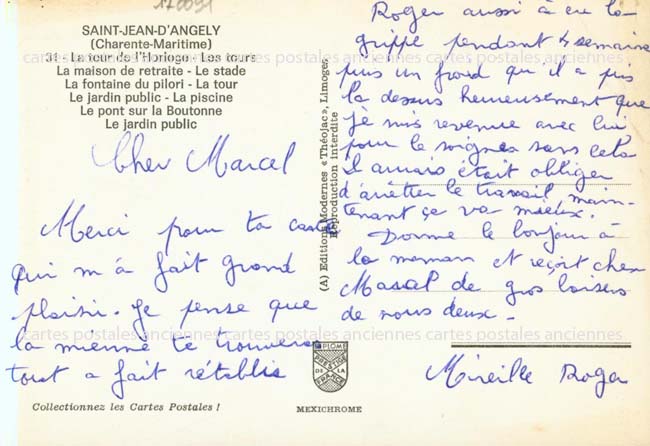 170091
SAINT-JEAN-D'ANGELY
(Charente-Maritime)
31 - La tour de l'Horloge - Les tours
La maison de retraite - Le stade
La fontaine du pilori - La tour
Le jardin public - La piscine
Le pont sur la Boutonne
Le jardin public
Cher Marcel
Merci pour ta carte
qui m'a fait grand
plaisir. Je pense que
la mienne te trouvera
tout a fait rétablis
Collectionnez les Cartes Postales !
(A) Editions Modernes « Théojac », Limoges
Reproduction interdite
DIPLOME
PRESTIGE
DE LA
FRANCE
MEXICHROME
Roger aussi à eu la
grippe pendant 4 semaines
puis un froid qu'il a pris
la dessus heureusement que
je suis revenue avec lui
pour le soigner sans cela
il aurais était obliger
d'arêtter le travail main-
tenant ça va mieux.
Donne le bonjour à
la maman et reçoit cher
Marcel de gros baisers
de nous deux -
Mireille Roger
cartes postales anciennes cartes postales anciennes cartes postales anciennes